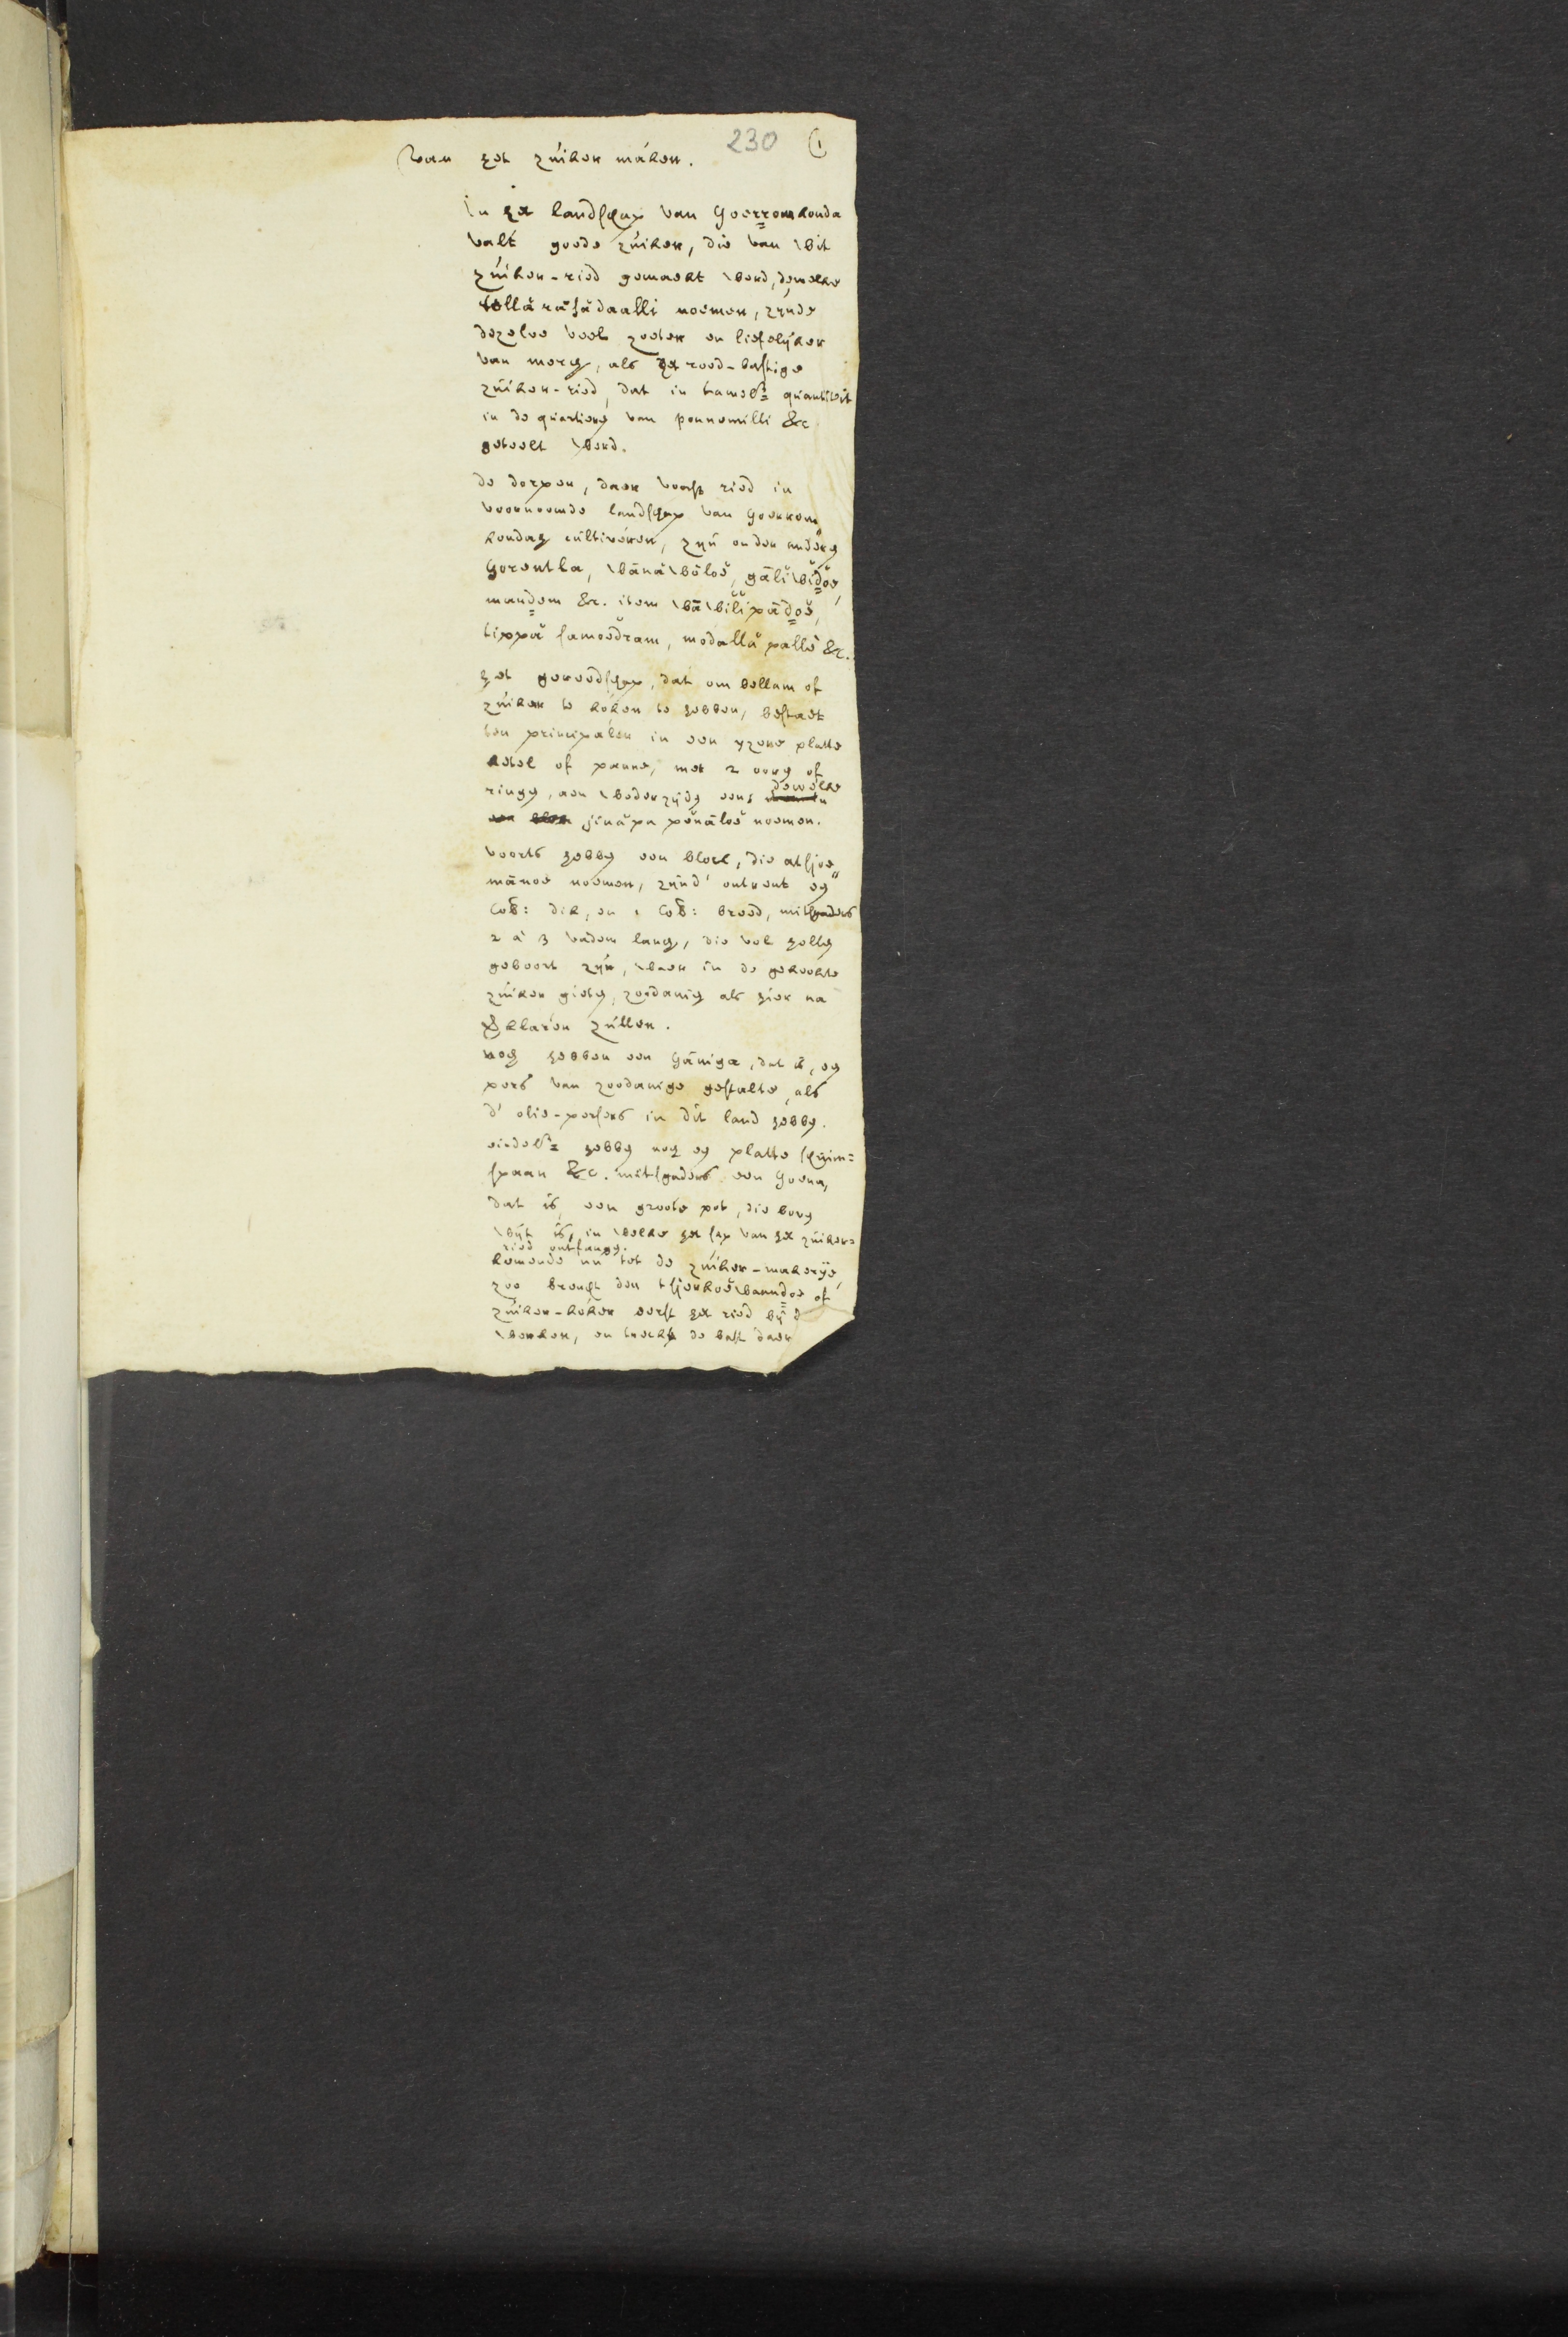 230 1
Van het zuiker máken.
In het landschap van Goerromkonda
valt goede zuiker, die van wit
zuiker-ried gemaekt werd, dewelke
tellă rāsădaalli noemen, zijnde
dezelve veel zoeter en liefelijker
van merg, als het rood-bastige
zuiker-ried, dat in tamel: quantiteit
in de quartiere van ponnomilli &c
geteelt werd.
de dorpen, daer voorsz ried in
voornoemde landschap van Goerrom„
kondaes cultivéren, zijn onder andere
Gorentla, wānăwōloĕ, gāliwĭdoe,
mandem &c. item wāwilipādoĕ,
tippă samoedram, modallă palle &c.
het gereedschap, dat om bellam of
zuiker te kóken te hebben, bestaet
ten principálen in een yzere platte
ketel of panne, met 2 oore of
ringe, aen wederzijde eens dewelke
jinăpa pĕnāloĕ noemen.
voorts hebbe een block, die atsjoe„
mānoe noemen, zijnd' ontrent een
Cob: dik, en 1 Cob: breed, mitsgaders
2 à 3 vadem lang, die vol holle
geboort zijn, waer in de gekookte
zuiker giete, zoodanig als hier na
verklaren zullen.
nog hebben een Gāniga, dat is, een
pers van zoodanige gestalte, als
d' olie-persers in dit land hebbe.
eindel: hebbe nog een platte schuim=
spaan &c. mitsgaders een Goena,
dat is, een groote pot, die bove
wijt is, in welke het sap van het zuiker=
ried ontfange.
komende nu tot de zuiker-makerije,
zoo brengt den tsjerkoĕwanndoe of
zuiker-kóker eerst het ried bij d
werken, en trockt de bast daer